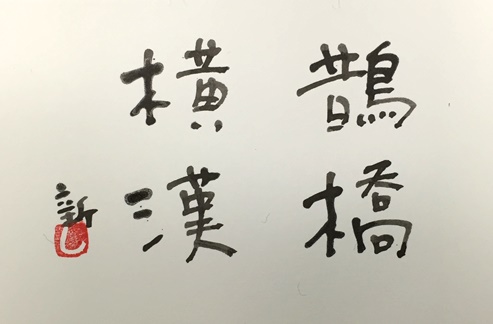 鵲橋
橫漢
新